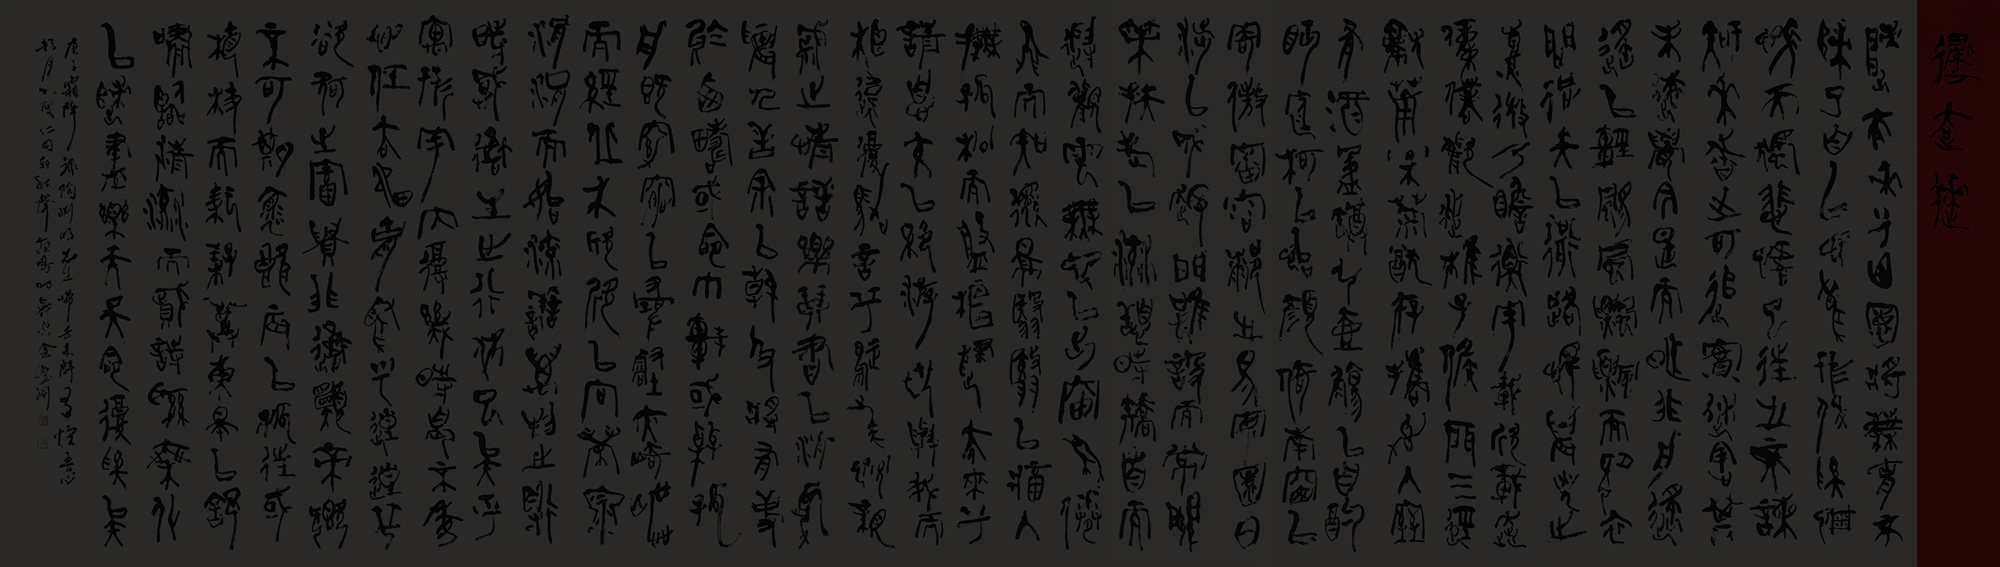 歸去來
歸去來兮田園將蕪胡不
歸既自以心為形役奚惆
悵而獨悲悟已往之不諫
知來者之可追實迷途其
未遠覺今是而昨非舟遙
遙以輕颺風飄飄而吹衣
問征夫以前路恨晨光之
熹微乃瞻衡宇載欣載奔
僮僕歡迎稚子候門三徑
就荒松菊猶存攜幼入室
有酒盈樽引壺觴以自酌
眄庭柯以怡顏倚南窗以
寄傲審容膝之易安園日
涉以成趣門雖設而常關
策扶老以流憩時矯首而
遐觀雲無心以出岫鳥倦
飛而知還景翳翳以將入
撫孤松而盤桓歸去來兮
請息交以絕游世與我而
相違復駕言兮焉求悅親
戚之情話樂琴書以消憂
農人告余以春及將有事
於西疇或命巾車或棹孤
舟既窈窕以尋壑亦崎嶇
而經丘木欣欣以向榮泉
涓涓而始流善萬物之得
時感吾生之行休已矣乎
寓形宇內復幾時曷不委
心任去留胡為乎遑遑兮
欲何之富貴非吾願帝鄉
不可期懷良辰以孤往或
植杖而耘耔登東皋以舒
嘯臨清流而賦詩聊乘化
以歸盡樂夫天命復奚疑
庚子霜降錄陶淵明先生歸去來辭